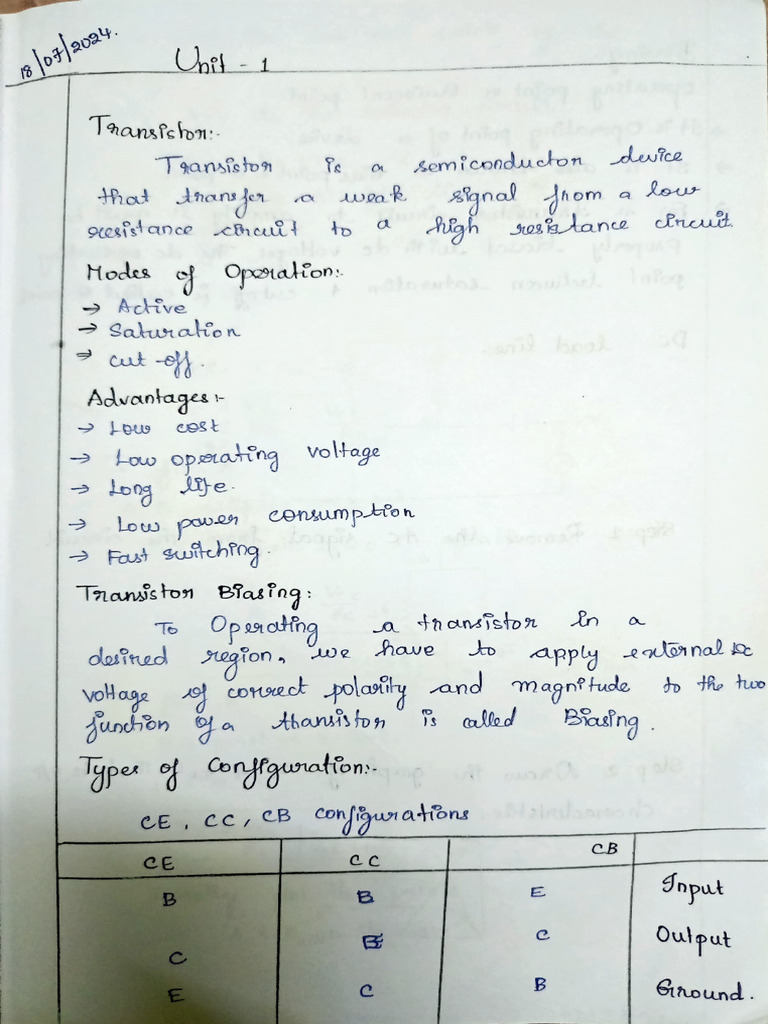 18/07/2024.
Unit - 1
Transistor:-
Transistor is a semiconductor device
that transfer a weak signal from a low
resistance circuit to a high resistance circuit.
Modes of Operation:-
→ Active
→ Saturation
→ cut-off.
Advantages:-
→ Low cost
→ Low operating voltage
→ Long life.
→ Low power consumption
→ Fast switching.
Transistor Biasing:
To Operating a transistor in a
desired region, we have to apply external DC
voltage of correct polarity and magnitude to the two
junction of a transistor is called Biasing.
Types of Configuration:-
CE, CC, CB configurations
CE CC CB
B B E Input
C E C Output
E C B Ground.